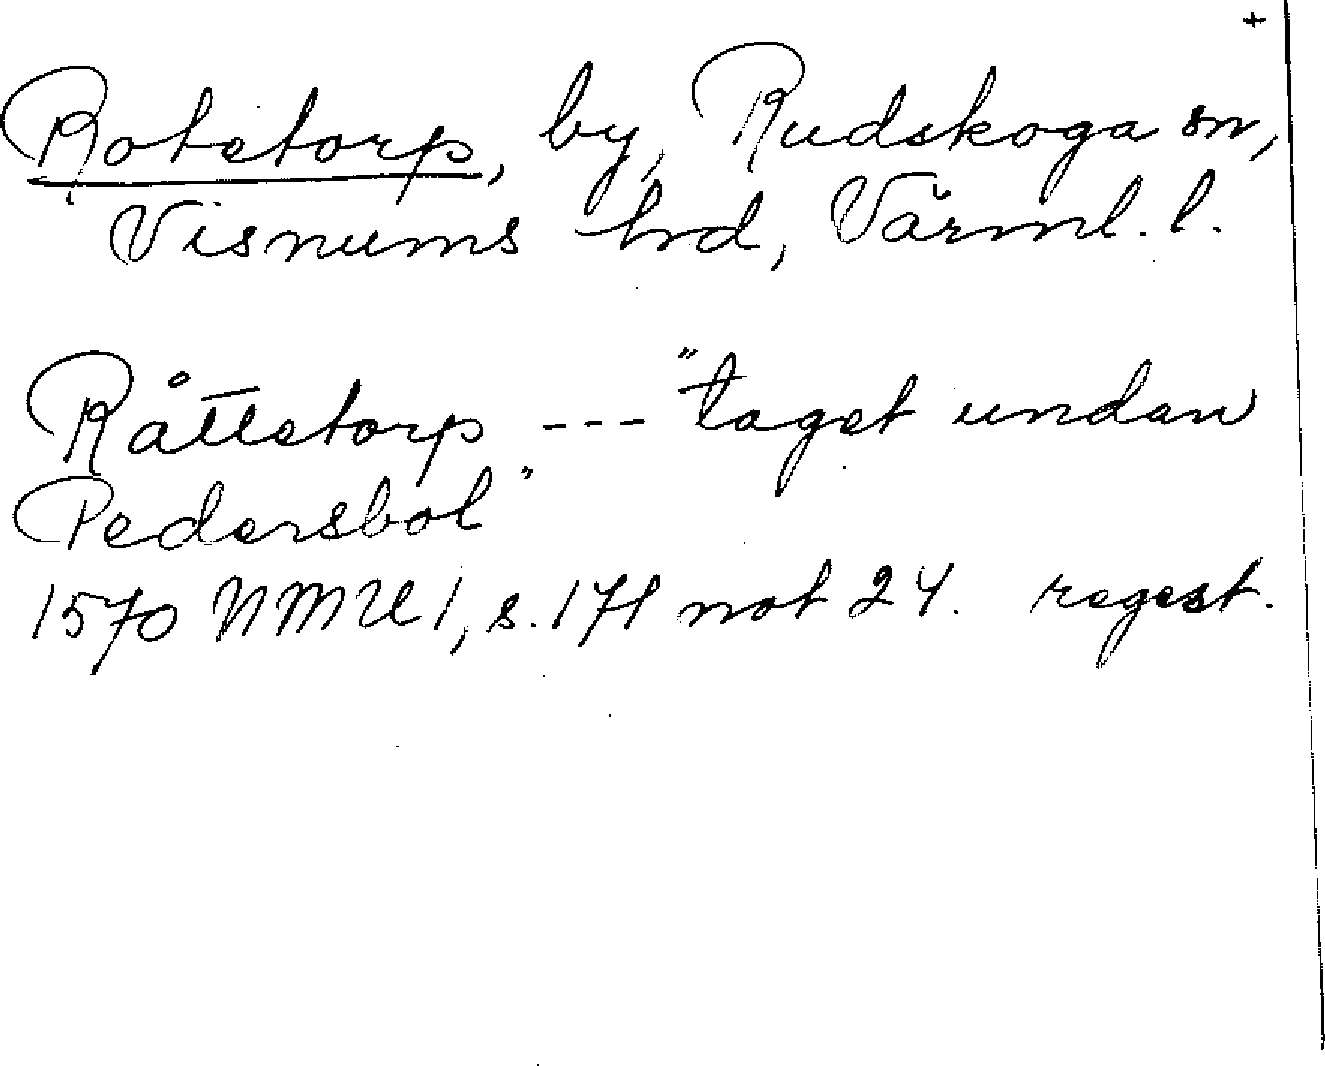 +
Rotetorp, by, Rudskoga sn,
Visnums hd, Värml. l.
Råttetorp --- "taget undan
Pedersbol"
1570 NMU 1, s. 171 not 24. regest.